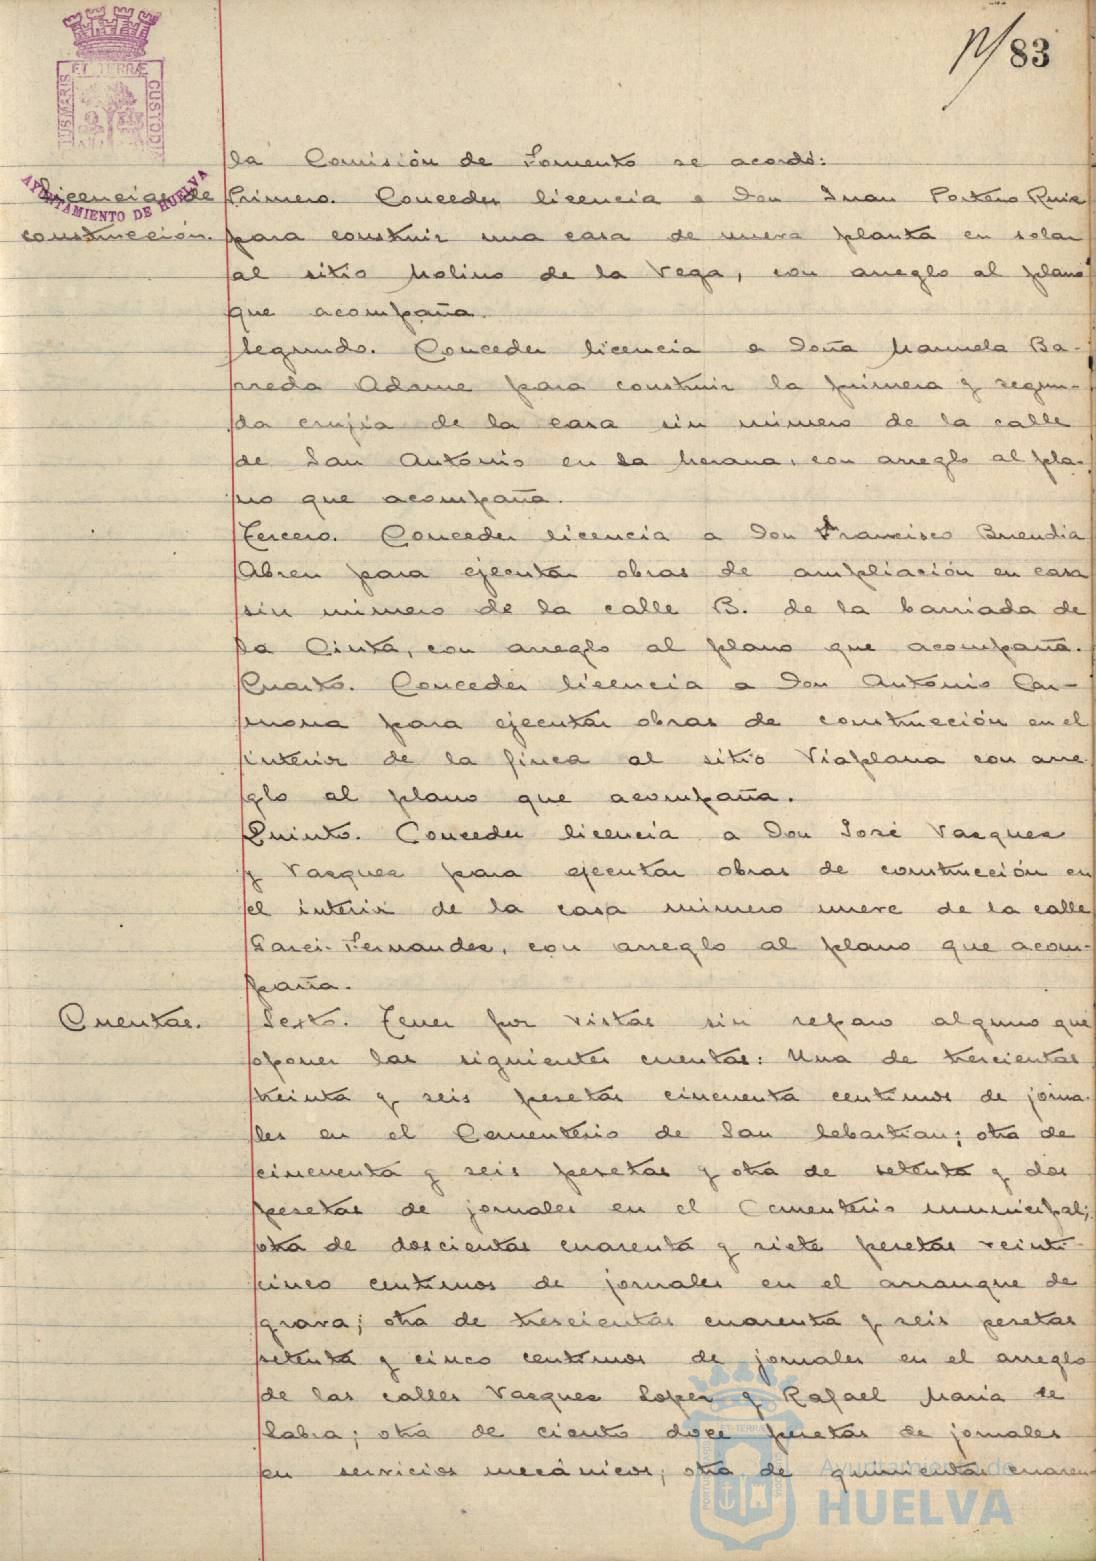 83
ET TERRÆ
CUSTODIA
AYUNTAMIENTO DE HUELVA
la Comisión de Fomento se acordó:
Licencias de
construcción.
Primero. Conceder licencia a Don Juan Portero Ruiz
para construir una casa de nueva planta en solar
al sitio Molino de la Vega, con arreglo al plano
que acompaña.
Segundo. Conceder licencia a Doña Manuela Ba-
rreda Adame para construir la primera y segun-
da crujia de la casa sin número de la calle
de San Antonio en la con arreglo al pla-
no que acompaña.
Tercero. Conceder licencia a Don Francisco Buendia
Abreu para ejecutar obras de ampliación en casa
sin número de la calle B. de la barriada de
la Cinta, con arreglo al plano que acompaña.
Cuarto. Conceder licencia a Don Antonio Car-
mona para ejecutar obras de construcción en el
interior de la finca al sitio Viaplana con arre-
glo al plano que acompaña.
Quinto. Conceder licencia a Don José Vazquez
y Vazquez para ejecutar obras de construcción en
el interior de la casa número nueve de la calle
Garci-Fernandez, con arreglo al plano que acom-
paña.
Cuentas.
Sexto. Tener por vistas sin reparo alguno que
oponer las siguientes cuentas: Una de trescientas
treinta y seis pesetas cincuenta centimos de jorna-
les en el Cementerio de San Sebastian; otra de
cincuenta y seis pesetas y otra de setenta y dos
pesetas de jornales en el Cementerio municipal;
otra de doscientas cuarenta y siete pesetas veinti-
cinco centimos de jornales en el arranque de
grava; otra de trescientas cuarenta y seis pesetas
setenta y cinco centimos de jornales en el arreglo
de las calles Vazquez Lopez y Rafael Maria de
Labra; otra de ciento doce pesetas de jornales
en servicios mecánicos; otra de quinientas cuaren-
Ayuntamiento de
HUELVA